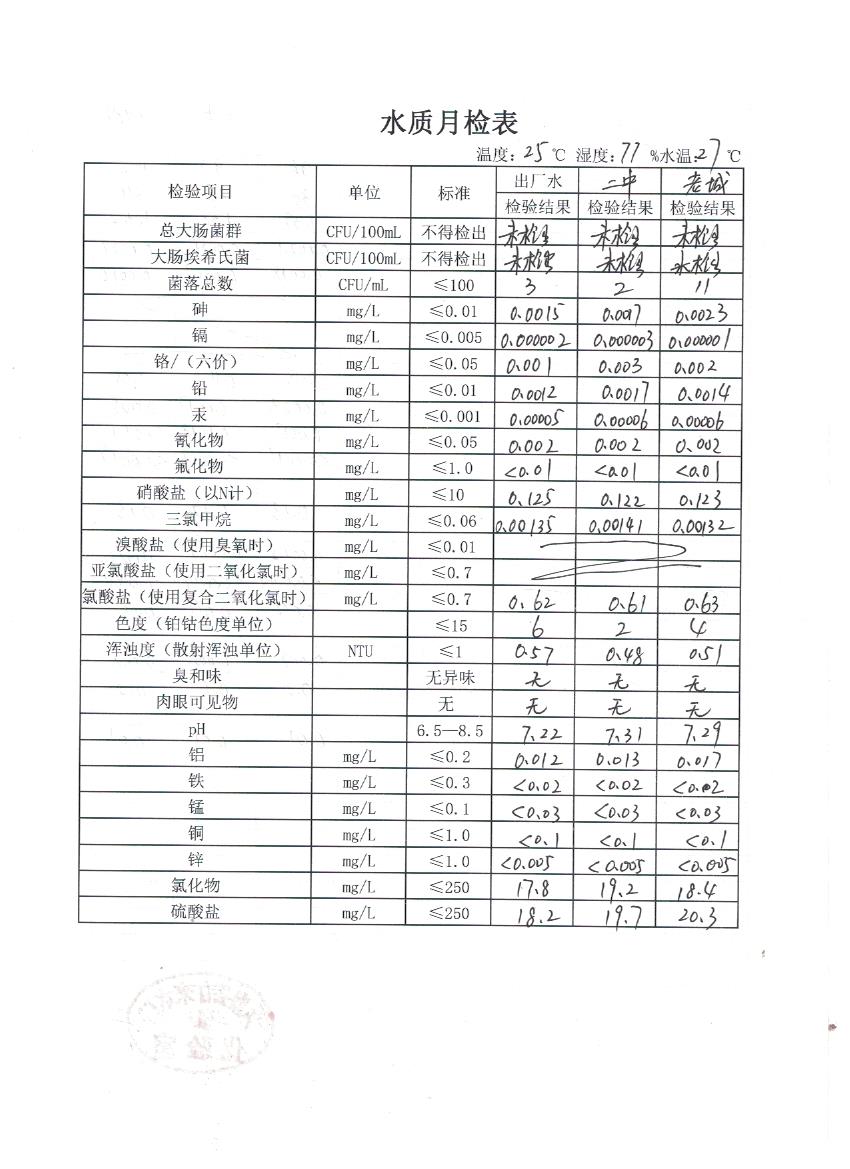 水质月检表
温度：25℃ 湿度：77 %水温：27℃
检验项目 单位 标准 出厂水 二中 老城
检验结果 检验结果 检验结果
总大肠菌群 CFU/100mL 不得检出 未检出 未检出 未检出
大肠埃希氏菌 CFU/100mL 不得检出 未检出 未检出 未检出
菌落总数 CFU/mL ≤100 3 2 11
砷 mg/L ≤0.01 0.0015 0.0023
镉 mg/L ≤0.005 0.000002 0.000003 0.000001
铬/（六价） mg/L ≤0.05 0.001 0.003 0.002
铅 mg/L ≤0.01 0.0012 0.0017 0.0014
汞 mg/L ≤0.001 0.00005 0.00006 0.00006
氰化物 mg/L ≤0.05 0.002 0.002 0.002
氟化物 mg/L ≤1.0 <0.01 <0.01 <0.01
硝酸盐（以N计） mg/L ≤10 0.125 0.122 0.123
三氯甲烷 mg/L ≤0.06 0.00135 0.00141 0.00132
溴酸盐（使用臭氧时） mg/L ≤0.01
亚氯酸盐（使用二氧化氯时） mg/L ≤0.7
氯酸盐（使用复合二氧化氯时） mg/L ≤0.7 0.62 0.61 0.63
色度（铂钴色度单位） ≤15 6 2 4
浑浊度（散射浑浊单位） NTU ≤1 0.57 0.48 0.51
臭和味 无异味 无 无 无
肉眼可见物 无 无 无 无
pH 6.5—8.5 7.22 7.31 7.29
铝 mg/L ≤0.2 0.012 0.013 0.017
铁 mg/L ≤0.3 <0.02 <0.02 <0.02
锰 mg/L ≤0.1 <0.03 <0.03 <0.03
铜 mg/L ≤1.0 <0.1 <0.1 <0.1
锌 mg/L ≤1.0 <0.005 <0.005 <0.005
氯化物 mg/L ≤250 17.8 19.2 18.4
硫酸盐 mg/L ≤250 18.2 19.7 20.3